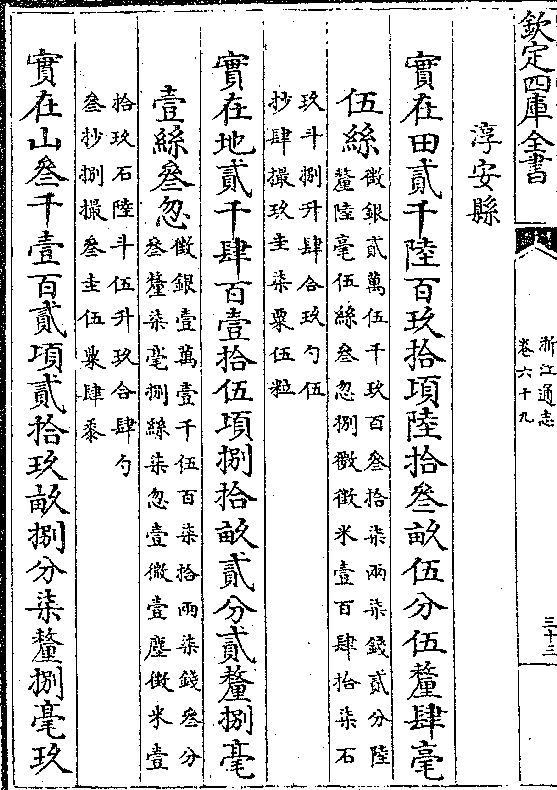 欽定四庫全書
浙江通志
卷六十九
三十三
淳安縣
實在田貳千陸百玖拾項陸拾叄畝伍分伍釐肆毫
伍絲
徵銀貳萬伍千玖百叄拾柒兩柒錢貳分陸
釐陸毫伍絲叄忽捌微徵米壹百肆拾柒石
玖斗捌升肆合玖勺伍
抄肆撮玖圭柒粟伍粒
實在地貳千肆百壹拾伍項捌拾畝貳分貳釐捌毫
壹絲叄忽
徵銀壹萬壹千伍百柒拾兩柒錢叄分
叄釐柒毫捌絲柒忽壹微壹塵徵米壹
拾玖石陸斗伍升玖合肆勺
叄抄捌撮叄圭伍粟肆黍
實在山叄千壹百貳項貳拾玖畝捌分柒釐捌毫玖